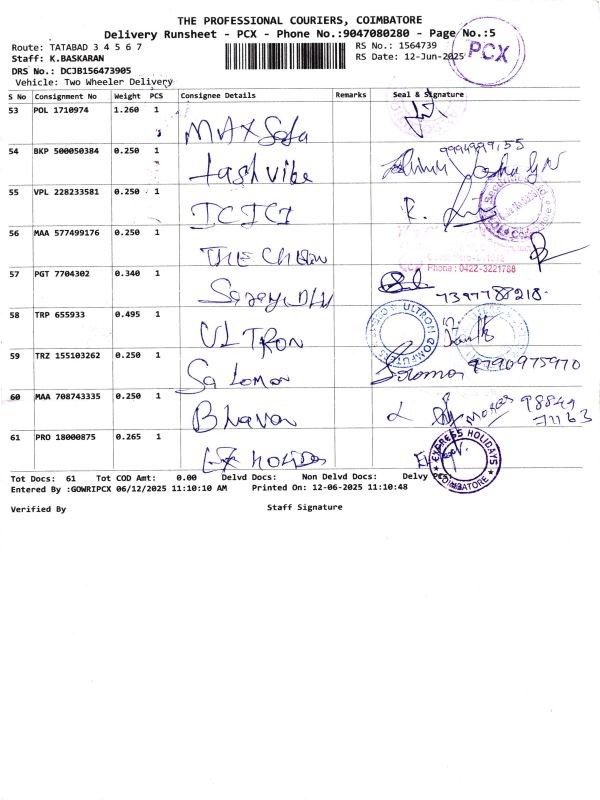 THE PROFESSIONAL COURIERS, COIMBATORE
Delivery Runsheet - PCX - Phone No.:9047080280 - Page No.:5
Route: TATABAD 3 4 5 6 7
RS No.: 1564739
Staff: K.BASKARAN
RS Date: 12-Jun-2025
PCX
DRS No.: DCJB156473905
Vehicle: Two Wheeler Delivery
S No Consignment No Weight PCS Consignee Details Remarks Seal & Signature
53 POL 1710974 1.260 1 MAX Sofa
54 BKP 500050384 0.250 1 tash vibe 9994999155
55 VPL 228233581 0.250 1 ICICI
56 MAA 577499176 0.250 1 THE Chen
Phone : 0422-3221788
57 PGT 7704302 0.340 1 7397788218
58 TRP 655933 0.495 1 ULTRON ULTRON COMPUTERS
59 TRZ 155103262 0.250 1 Salomon Solomon 9790975970
60 MAA 708743335 0.250 1 Bhavan Moses 98849
71163
61 PRO 18000875 0.265 1 Ex holidas EXPRESS HOLIDAYS COIMBATORE
Tot Docs: 61 Tot COD Amt: 0.00 Delvd Docs: Non Delvd Docs: Delvy PCS:
Entered By :GOWRIPCX 06/12/2025 11:10:10 AM Printed On: 12-06-2025 11:10:48
Verified By Staff Signature